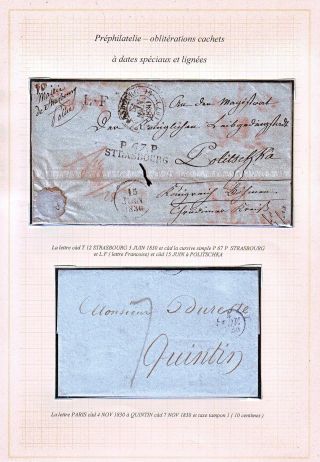 Préphilatelie – oblitérations cachets
à dates spéciaux et lignées
Mairie
de Strasbourg
Police
L.F
An den Magistrat
Der Königlichen Leibgedingstadt
P 67 P
STRASBOURG
Politschka
15
JUIN
1830
Königreich Böhmen
Chrudimer Kreis
La lettre càd T 12 STRASBOURG 5 JUIN 1830 et càd la cursive simple P 67 P STRASBOURG
et L.F ( lettre Francaise) et càd 15 JUIN à POLITSCHKA
Monsieur Dureste
Quintin
La lettre PARIS càd 4 NOV 1830 à QUINTIN càd 7 NOV 1830 et taxe tampon 1 ( 10 centimes )